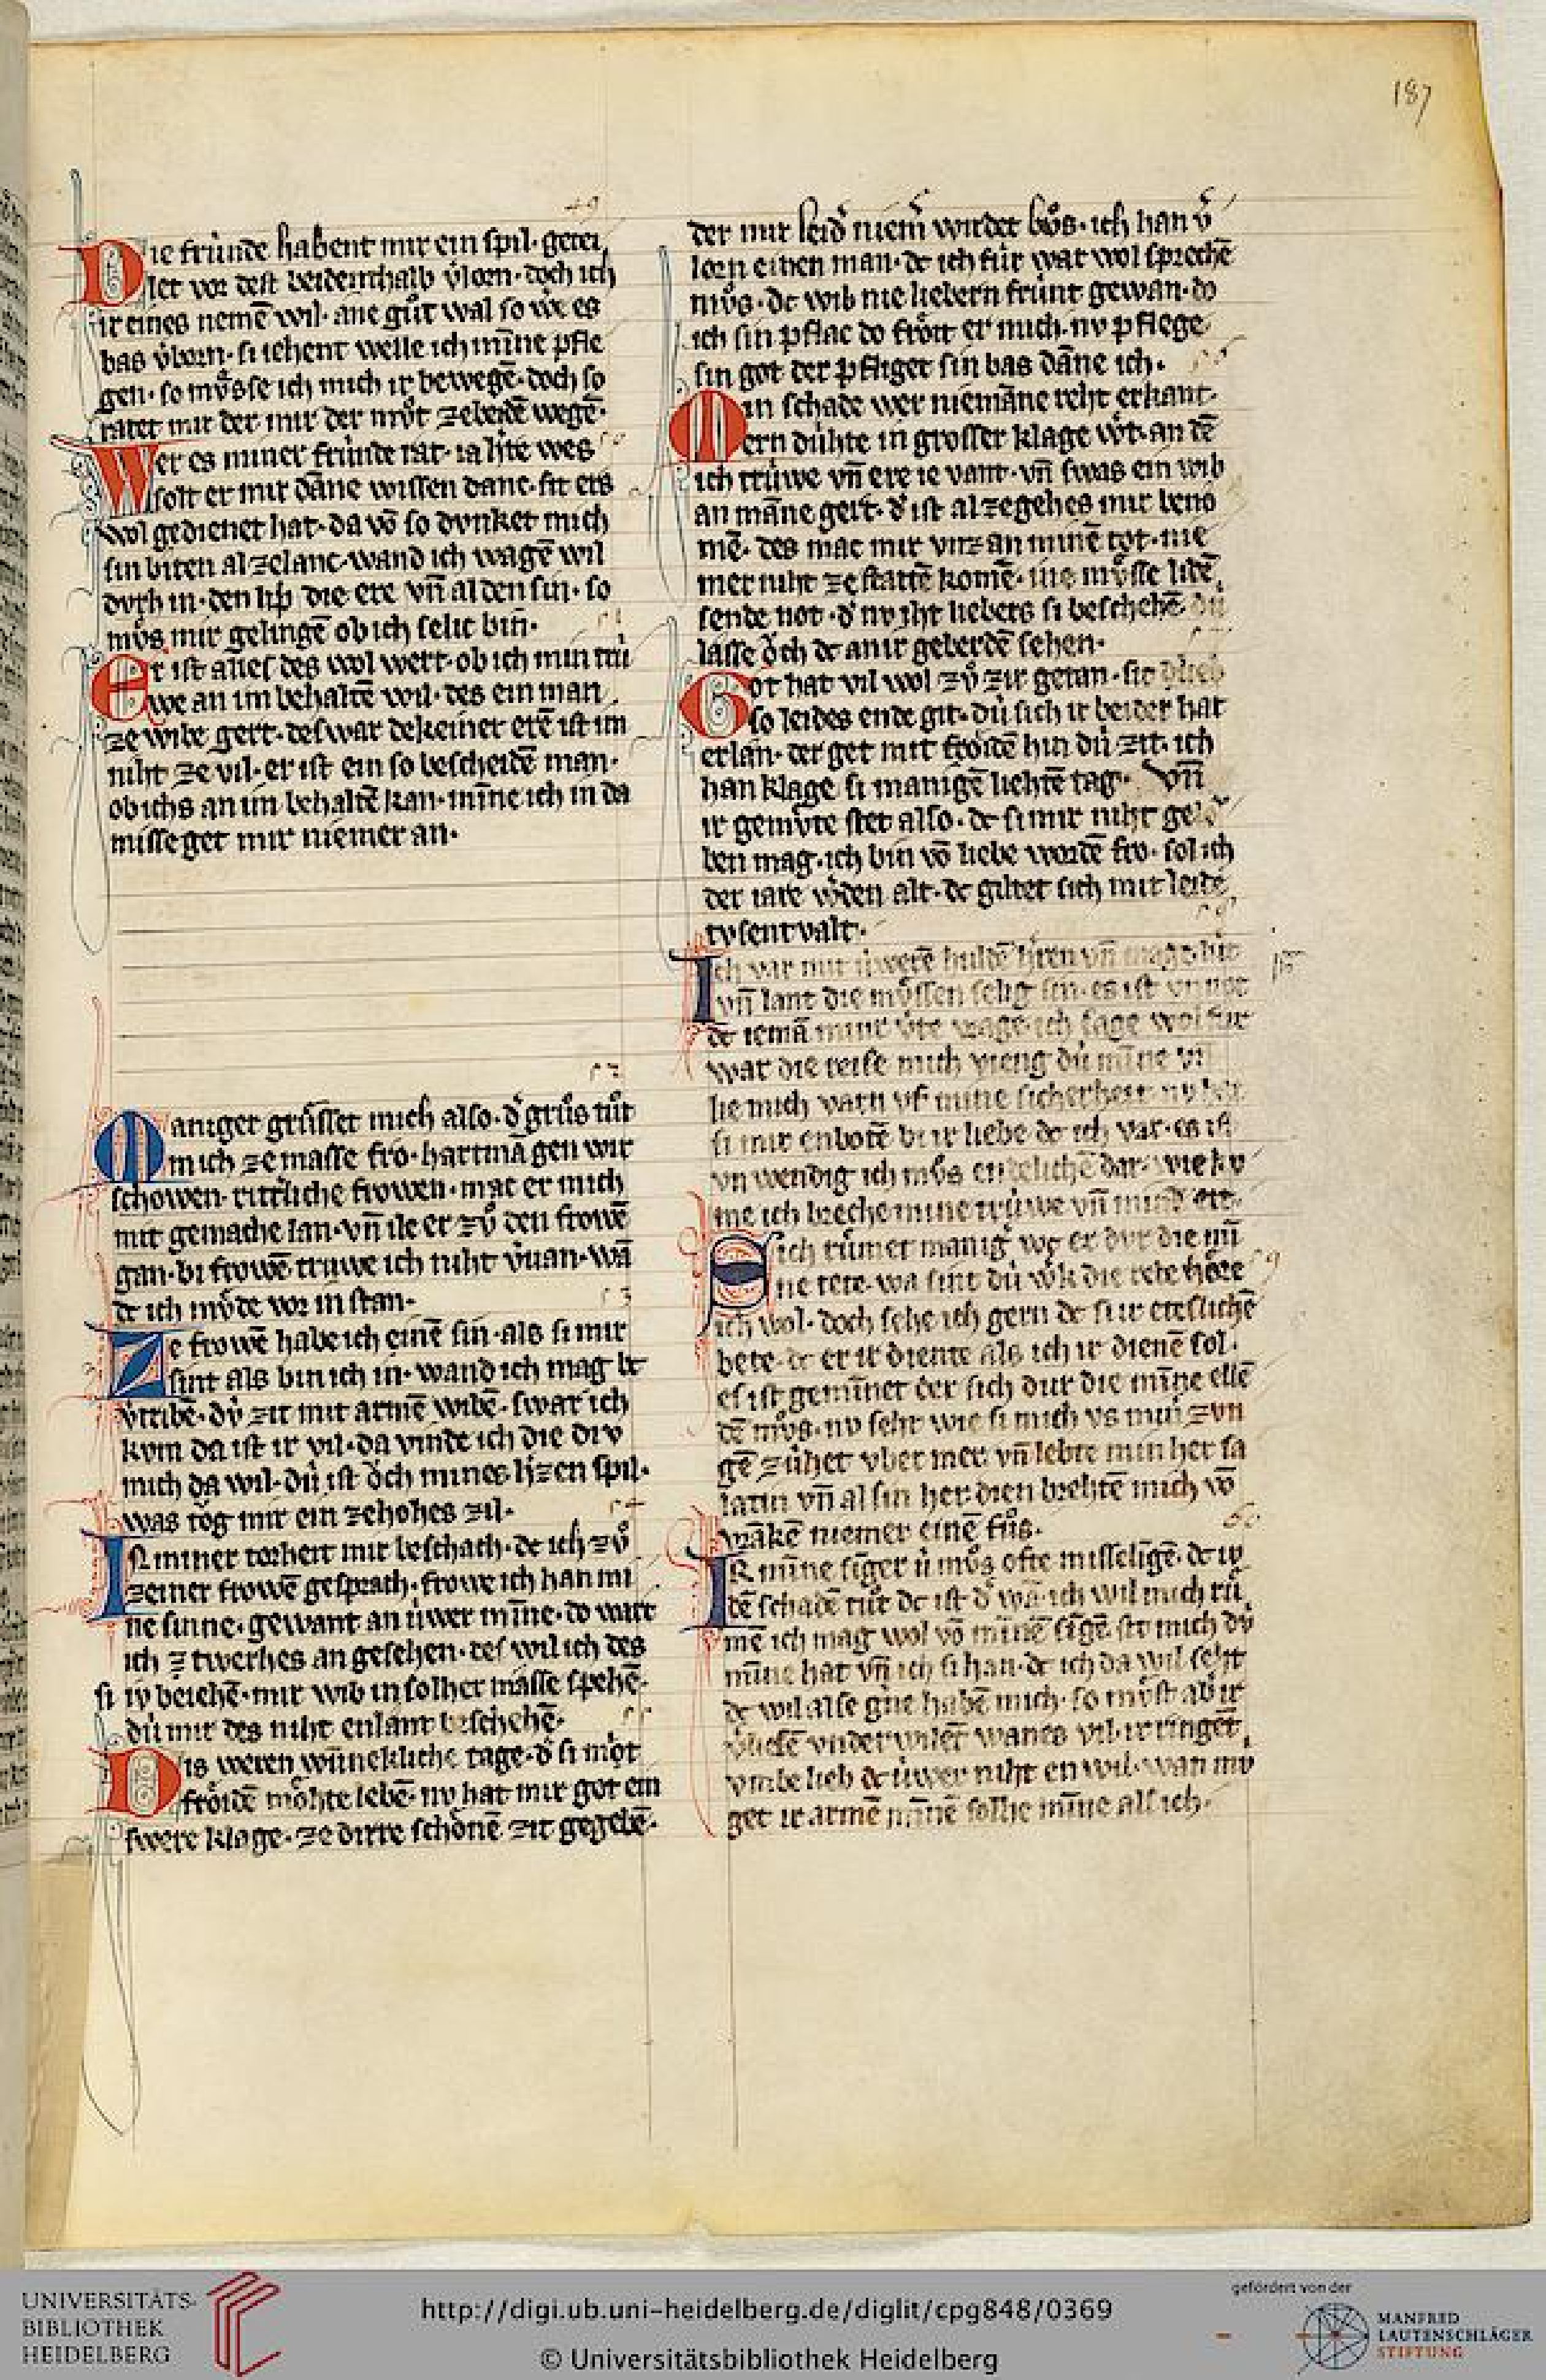 187
49
Die frúnde habent mir ein spil· getei
let vor dest beidenthalb v̓lorn· doch ich
ir eines nemē wil· ane gůt wal so we es
bas v̓born· si iehent welle ich minne pfle
gen· so můsse ich mich ir bewegē· doch so
ratet mir der mir der můt zebeidē wegē·
Wer es miner frúnde rat· ia h̓re wes
solt er mir dāne wissen dane· sit ers
wol gedienet hat· da vō so dvnket mich
sin biten al zelanc· wand ich wagē wil
dvrh in· den lip die ere vn̄ al den sin· so
můs mir gelingē ob ich selic bin·
51
Er ist alles des wol wert· ob ich min trú
we an im behaltē wil· des ein man
ze wibe gert· deswar dekeiner erē ist im
niht ze vil· er ist ein so bescheidē man·
ob ichs an im behaltē kan· mīne ich in da
misseget mir niemer an·
52
Maniger grússet mich also· d̓ grůs tůt
mich ze masse fro· hartmā gen wir
schowen· ritt̓liche frowen· mac er mich
mit gemache lan· vn̄ ile er zů den frowē
gan· bi frowē trúwe ich niht v̓van· wā
dc ich můde vor in stan·
53
Ze frowē habe ich einē sin· als si mir
sint als bin ich in· wand ich mag bc
v̓tribē· dú zit mit armē wibē· swar ich
kvm da ist ir vil· da vinde ich die div
mich da wil· dú ist ŏch mines h̓zen spil·
was tŏg mir ein zehohes zil·
54
IN miner torheit mir beschach· dc ich zů
zeiner frowē gesprach· frowe ich han mi
ne sinne· gewant an úwer mīne· do wart
ich ze twerhes an gesehen· des wil ich des
si iv beiehē· mir wib in solher masse spehē·
dú mir des niht enlant beschehē·
55
Dis weren wúnekliche tage· d̓ si mọt
frŏidē mŏhte lebē· nv hat mir got ein
swere klage· ze dirre schŏnē zit gegebē·
der mir leid̓ niem̓ wirdet bůs· ich han v̓
lorn einen man· dc ich fúr war wol sprechē
můs· dc wib nie liebern frúnt gewan· do
ich sin pflac do frŏit er mich· nv pflege
sin got der pfliget sin bas dāne ich·
56
Min schade wer niemāne reht erkant·
ern dúhte in grosser klage w̓t· an dē
ich trúwe vn̄ ere ie vant· vn̄ swas ein wib
an māne gert· d̓ ist alzegehes mir beno
mē· des mac mir vnz an minē tot· nie
mer niht ze stattē komē· ine můsse lidē
sende not· d̓ nv iht liebers si beschehē· dú
lasse ŏch dc an ir geberdē sehen·
Got hat vil wol zů zir getan· sit
so leides ende git· dú sich ir beider hat
erlan· der get mit frŏidē hin dú zit· ich
han klage si manigē liehtē tag· vn̄
ir gemv̊te stet also· dc si mir niht gelŏ
ben mag· ich bin vō liebe wordē fro· sol ich
der iare w̓den alt· dc giltet sich mit leide
tvsentvalt·
Ich var mit úwerē huldē h̓ren vn̄ mage· lút
vn̄ lant die můssen selig sin· es ist vnnot
dc iemā miner v̓te vrage· ich sage wol fúr
war die reise mich vieng dú mīne vn̄
lie mich varn vf mine sicherheit· nv hat
si mir enbotē bi ir liebe dc ich var· es ist
vn wendig ich můs endelichē dar· wie kv
me ich breche mine trúwe vn̄ minē eit·
59
Sich růmet manig̓ wc er dvr die mī
ne tete· wa sint dú w̓k die rede hŏre
ich wol· doch sehe ich gern dc si ir etesliche
bete· dc er ir diente als ich ir dienē sol·
es ist gemīnet der sich dur die mīne elle
dē můs· nv seht wie si mich vs min̓ zvn
gē zúhet vber mer· vn̄ lebte min her sa
latin vn̄ al sin her· dien brehtē mich vō
vrākē niemer einē fůs·
60
IR mīne siger ú můs ofte misselīgē· dc iv
dē schadē tůt dc ist d̓ wā· ich wil mich rů
mē ich mag wol vō mīnē sīgē· sit mich dú
mīne hat vn̄ ich si han· dc ich da wil seht
dc wil alse gne habē mich· so můst ab ir
v̓liesē vnderwilēt wanes vil· ir ringēt
vmbe lieb dc úwer niht en wil· wan mv
get ir armē mīnē solhe mīne als ich·
UNIVERSITÄTS-
BIBLIOTHEK
HEIDELBERG
http://digi.ub.uni-heidelberg.de/diglit/cpg848/0369
© Universitätsbibliothek Heidelberg
gefördert von der
MANFRED
LAUTENSCHLÄGER
STIFTUNG